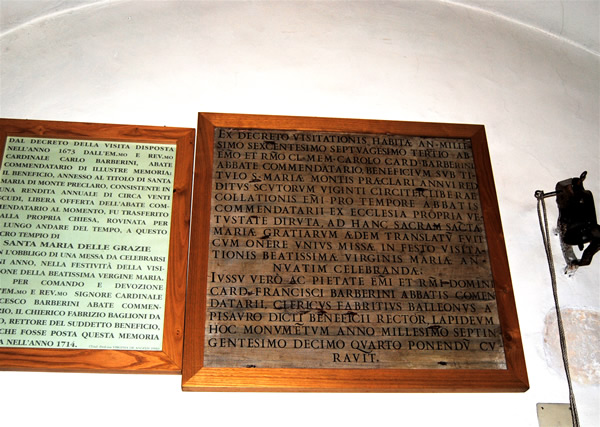 DAL DECRETO DELLA VISITA DISPOSTA
NELL'ANNO 1673 DALL'EM.MO E REV.MO
CARDINALE CARLO BARBERINI, ABATE
COMMENDATARIO DI ILLUSTRE MEMORIA;
IL BENEFICIO, ANNESSO AL TITOLO DI SANTA
MARIA DI MONTE PRECLARO, CONSISTENTE IN
UNA RENDITA ANNUALE DI CIRCA VENTI
SCUDI, LIBERA OFFERTA DELL'ABATE COM-
MENDATARIO AL MOMENTO, FU TRASFERITO
ALLA PROPRIA CHIESA, ROVINATA PER
LUNGO ANDARE DEL TEMPO, A QUESTO
CRO TEMPIO DI
SANTA MARIA DELLE GRAZIE
L'OBBLIGO DI UNA MESSA DA CELEBRARSI
NI ANNO, NELLA FESTIVITÀ DELLA VISI-
ONE DELLA BEATISSIMA VERGINE MARIA.
PER COMANDO E DEVOZIONE
EM.MO E REV.MO SIGNORE CARDINALE
CESCO BARBERINI ABATE COMMEN-
IL CHIERICO FABRIZIO BAGLIONI DA
RETTORE DEL SUDDETTO BENEFICIO,
CHE FOSSE POSTA QUESTA MEMORIA
NELL'ANNO 1714.
EX DECRETO VISITATIONIS HABITÆ AN·MILLE
SIMO SEXCENTESIMO SEPTVAGESIMO TERTIO AB
EMO ET RMO CL·MEM·CAROLO CARD·BARBERINI
ABBATE COMMENDATARIO, BENEFICIUM SVB TI
TVLO S·MARIÆ MONTIS PRÆCLARI ANNVI RED
DITVS SCVTORVM VIGINTI CIRCITER LIBERAE
COLLATIONIS EMI PRO TEMPORE ABBATIS
COMMENDATARII EX ECCLESIA PROPRIA VE
TVSTATE DIRVTA, AD HANC SACRAM SACTA
MARIÆ GRATIARVM ÆDEM TRANSLATV FVIT
CVM ONERE VNIVS MISSÆ IN FESTO VISITA
TIONIS BEATISSIMÆ VIRGINIS MARIÆ AN-
NVATIM CELEBRANDÆ:
IVSSV VERÒ AC PIETATE EMI ET RMI DOMINI
CARD·FRANCISCI BARBERINI ABBATIS COMEN
DATARII CLERICVS FABRITIVS BALLEONVS A
PISAVRO DICTI BENEFICII RECTOR LAPIDEVM
HOC MONVMETVM ANNO MILLESIMO SEPTIN
GENTESIMO DECIMO QVARTO PONENDV CV
RAVIT.